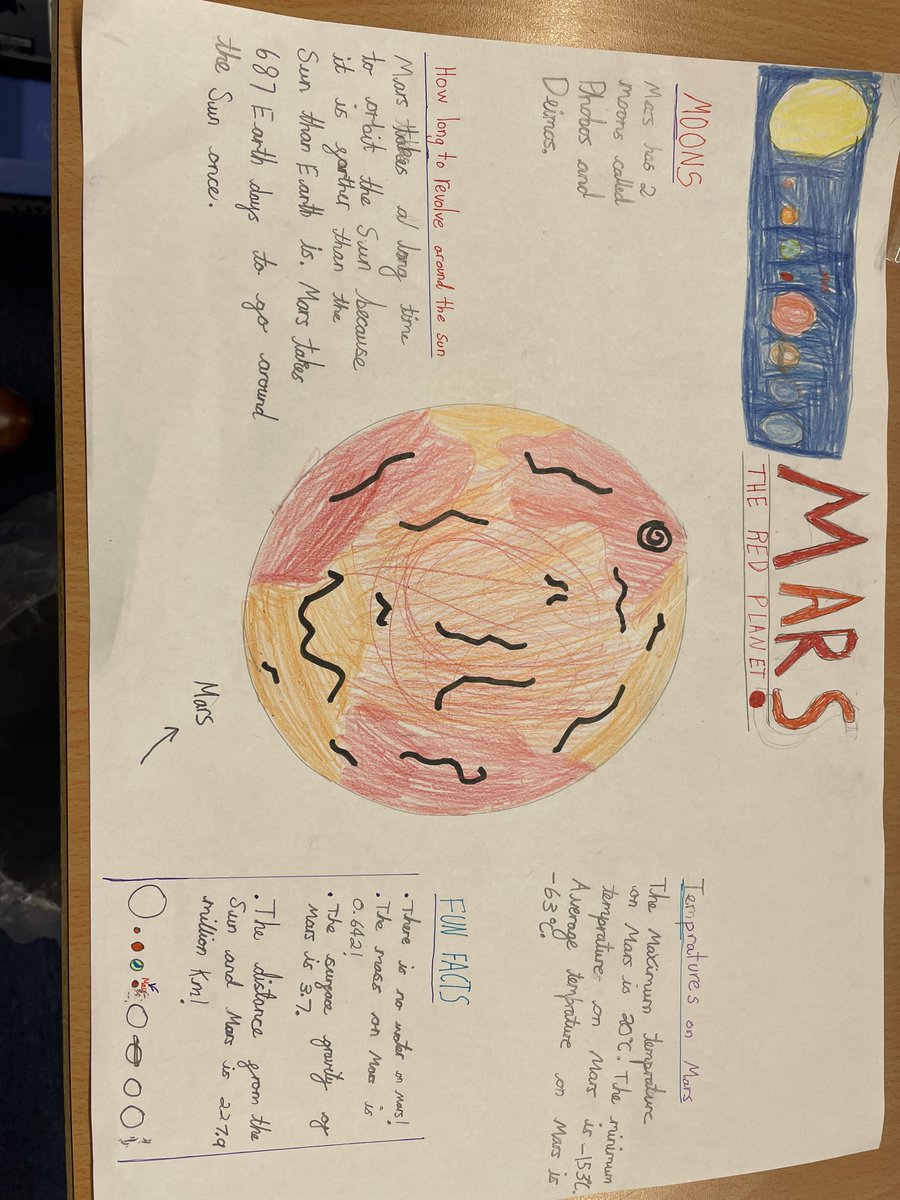 MARS
THE RED PLANET.
MOONS
Mars has 2
moons called
Phobos and
Deimos.
How long to revolve around the sun
Mars takes a long time
to orbit the Sun because
it is farther than the
Sun than Earth is. Mars takes
687 Earth days to go around
the Sun once.
Mars
Tempratures on Mars
The Maximum temprature
on Mars is 20°C. The minimum
temprature on Mars is -153°C.
Average temprature on Mars is
-63°C.
FUN FACTS
• There is no water on Mars!
• The mass on Mars is
0.642!
• The surface gravity of
Mars is 3.7.
• The distance from the
Sun and Mars is 227.9
million Km!
Mars